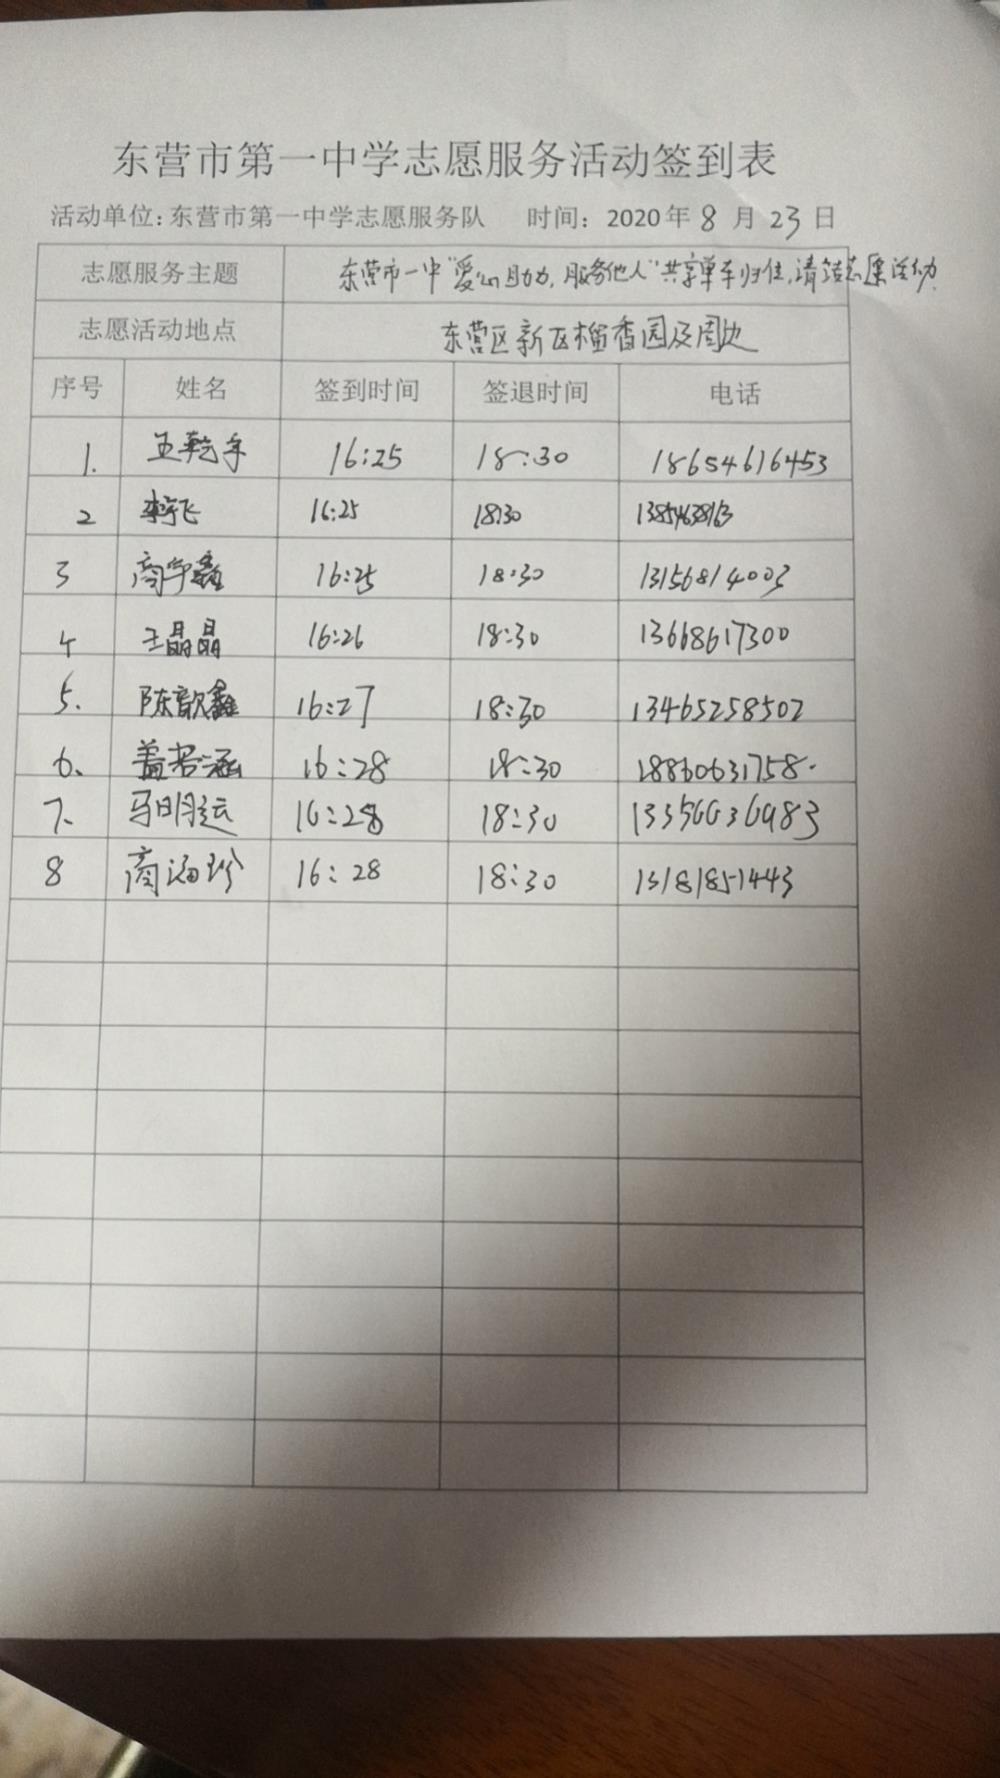 东营市第一中学志愿服务活动签到表
活动单位：东营市第一中学志愿服务队 时间：2020年8月23日
志愿服务主题 东营市一中“爱心助力，服务他人”共享单车归位，清洁志愿活动
志愿活动地点 东营区新区榴香园及周边
序号 姓名 签到时间 签退时间 电话
1. 王乾宇 16:25 18:30 18654616453
2 李宇飞 16:25 18:30
3 商宇鑫 16:25 18:30 13156814003
4 王晶晶 16:26 18:30 13668617300
5. 陈歆鑫 16:27 18:30 13465258502
6. 盖若涵 16:28 18:30 18860631758.
7. 马明运 16:28 18:30
8 商海珍 16:28 18:30 13181851443